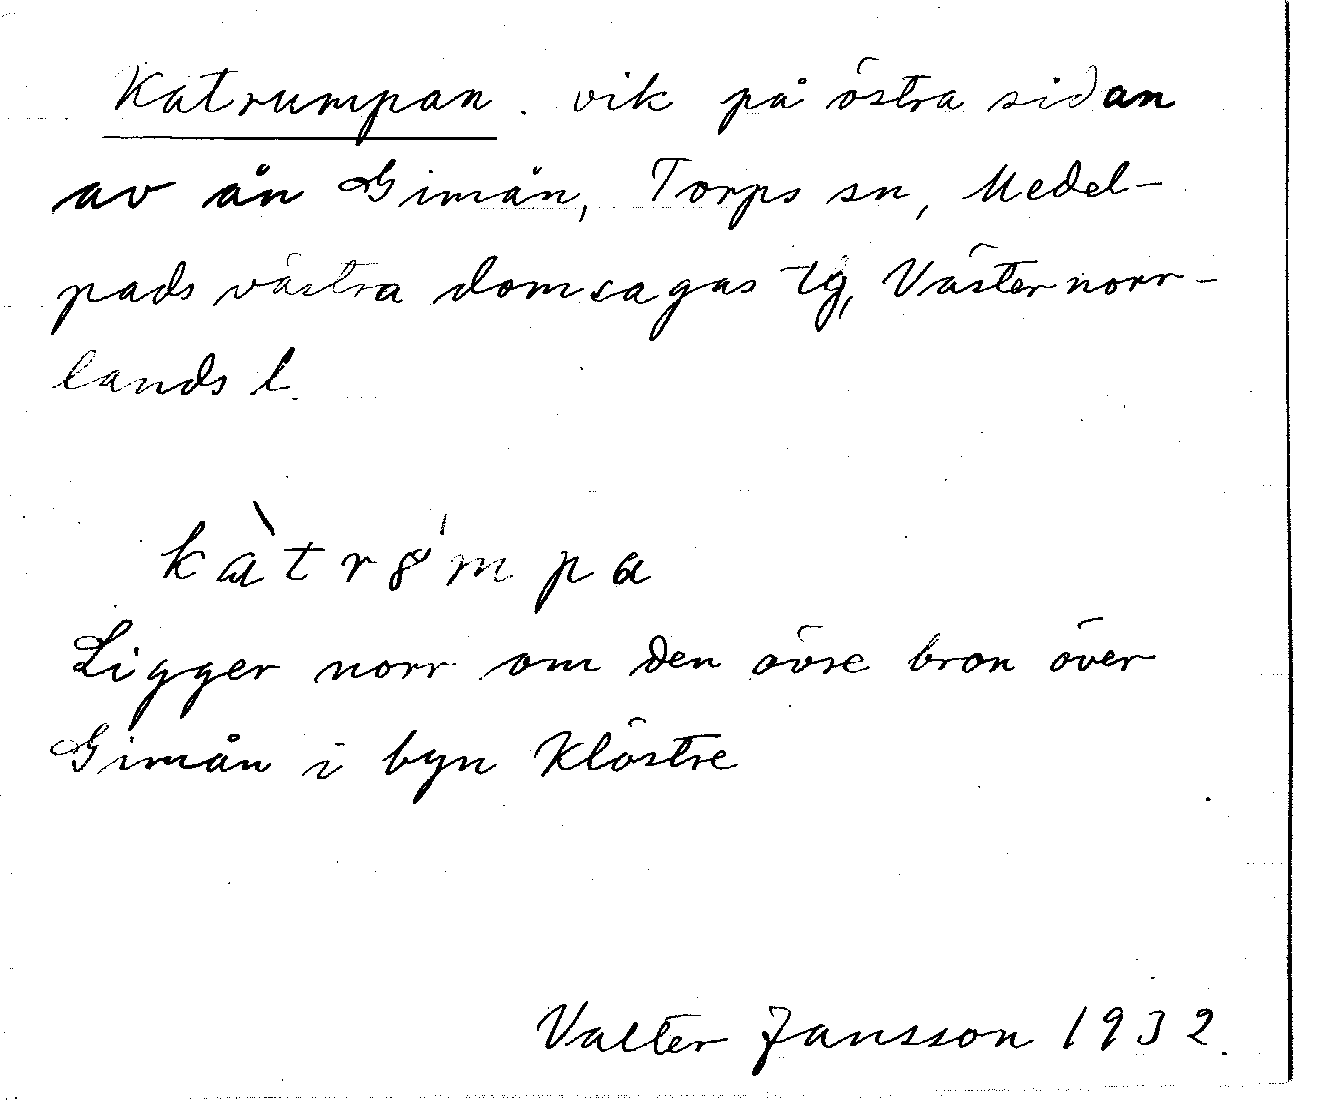 Katrumpan. vik på östra sidan
av ån Gimån, Torps sn, Medel-
pads västra domsagas tg, Västernorr-
lands l.
kàtr8'mpa
Ligger norr om den övre bron över
Gimån i byn Klöstre
Valter Jansson 1932.